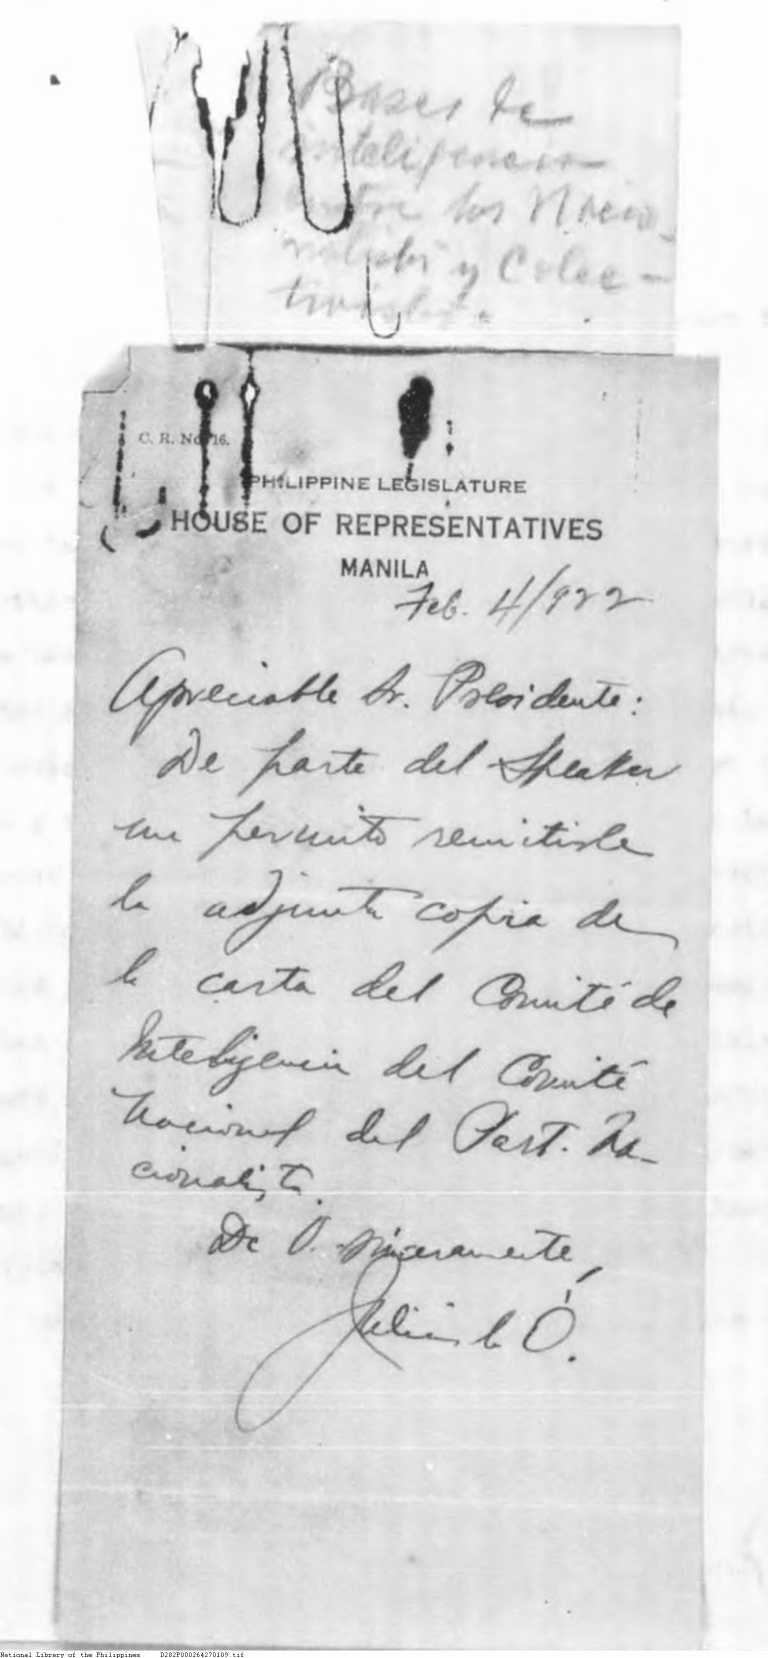 Bases de
inteligencia
entre los Nacio-
nalistas y Colec-
tivistas.
C. R. No. 16.
PHILIPPINE LEGISLATURE
HOUSE OF REPRESENTATIVES
MANILA
Feb. 4/922
Apreciable Sr. Presidente:
De parte del Speaker
me permito remitirle
la adjunta copia de
la carta del Comité de
Inteligencia del Comité
Nacional del Part. Na-
cionalista.
De V. sinceramente,
National Library of the Philippines D282P000264270109.tif